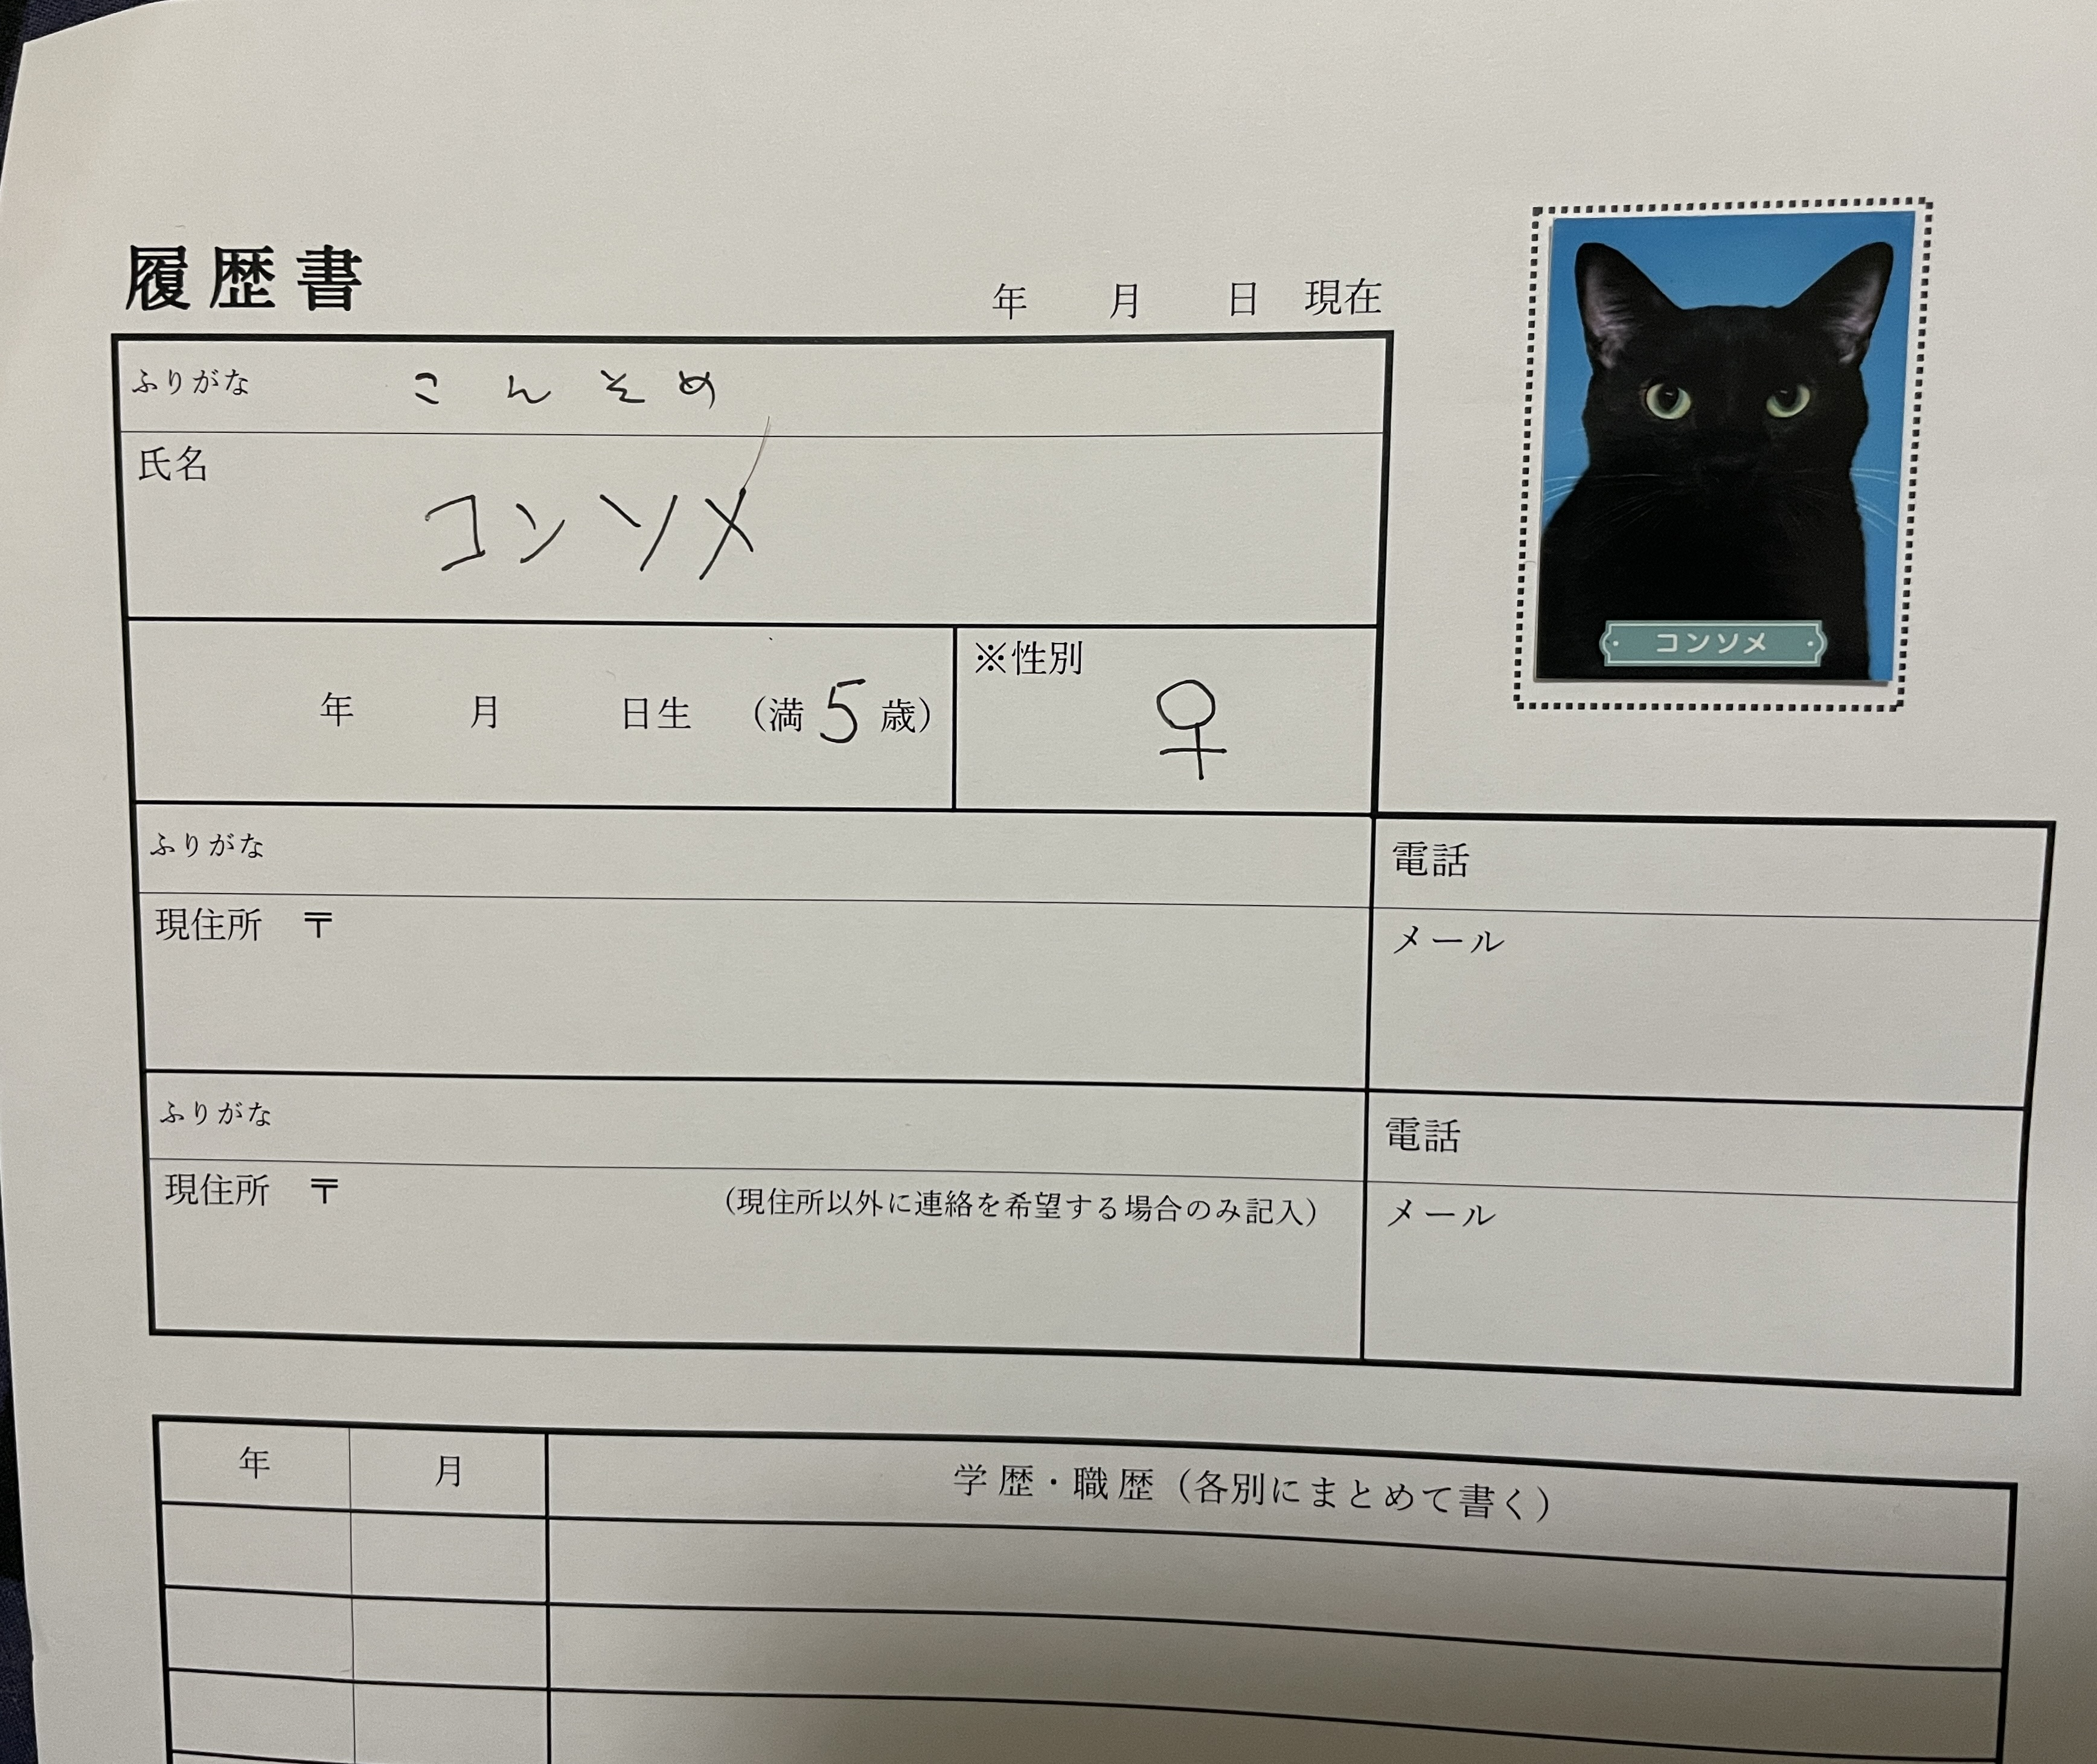 履歴書
年 月 日 現在
ふりがな こんそめ
氏名
コンソメ
コンソメ
年 月 日生 (満 5 歳)
※性別
♀
ふりがな
電話
現住所 〒
メール
ふりがな
電話
現住所 〒 (現住所以外に連絡を希望する場合のみ記入)
メール
年 月 学歴・職歴(各別にまとめて書く)